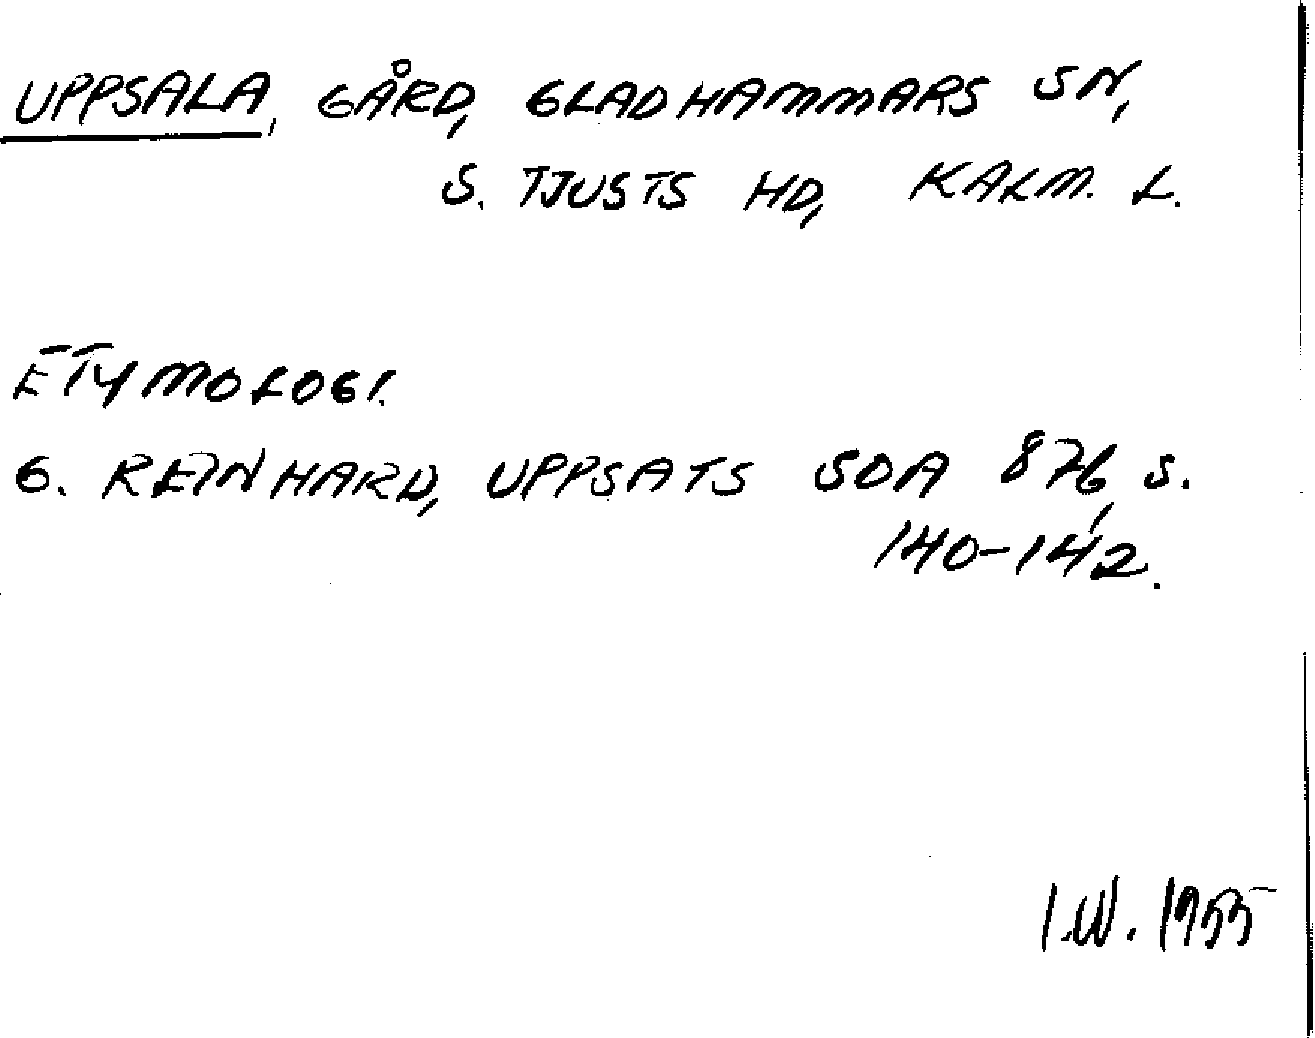 UPPSALA, GÅRD, GLADHAMMARS SN,
S. TJUSTS HD, KALM. L.
ETYMOLOGI.
G. REINHARD, UPPSATS SOA 876, S.
140-142.
I.W. 1955